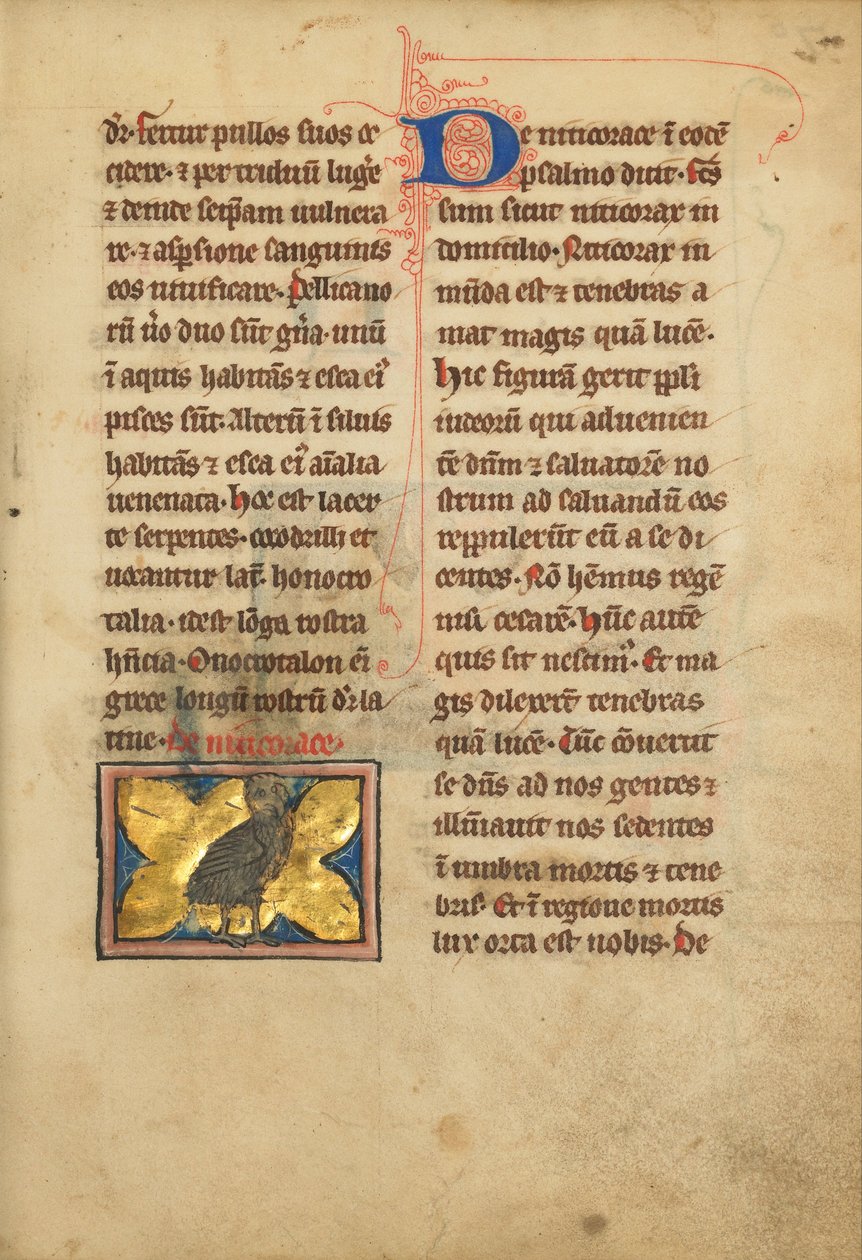 dr̄. Fertur pullos suos oc
cidere. ⁊ per triduū luge͛
⁊ deinde seip̄am uulnera
re. ⁊ asp̄sione sanguinis
eos uiuificare. Pellicano
rū u̾o duo sūt gn̄a. unū
ī aquis habitās ⁊ esca ei᷒
pisces sūt. Alterū ī siluis
habitās ⁊ esca ei᷒ aīalia
uenenata. Hoc est lacer
te serpentes. cocodrilli et
uocantur lat̄. honocro
talia. idest lōga rostra
hn̄cia. Onocrotalon ei̅
grece longū rostrū dr̄ la
tine. De niticorace.
De niticorace ī eodē
psalmo dicit. Fc̄s
sum sicut niticorax in
domicilio. Niticorax in
mūda est ⁊ tenebras a
mat magis quā lucē.
Hic figurā gerit ppl̄i
iudeorū qui aduenien
tē dn̄m ⁊ saluatorē no
strum ad saluandū eos
reppulerūt eū a se di
centes. Nō hēmus regē
nisi cesarē. Hūc autē
quis sit nescim᷒. Et ma
gis dilexer̄t tenebras
quā lucē. Tūc ōuertit
se dn̄s ad nos gentes ⁊
illūiauit nos sedentes
ī umbra mortis ⁊ tene
bris. Et ī regione mortis
lux orta est nobis. De